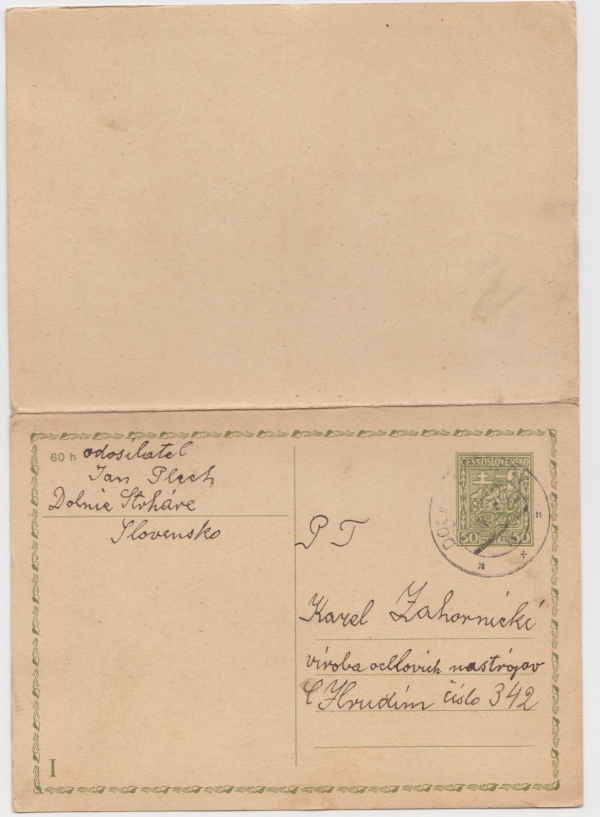 60 h
odosílatel
Jan Plech
Dolnie Strháre
Slovensko
ČESKOSLOVENSKO
50 50
P T
Karel Zahornícki
víroba ocelových nastrójov
C Hrudím číslo 342
I